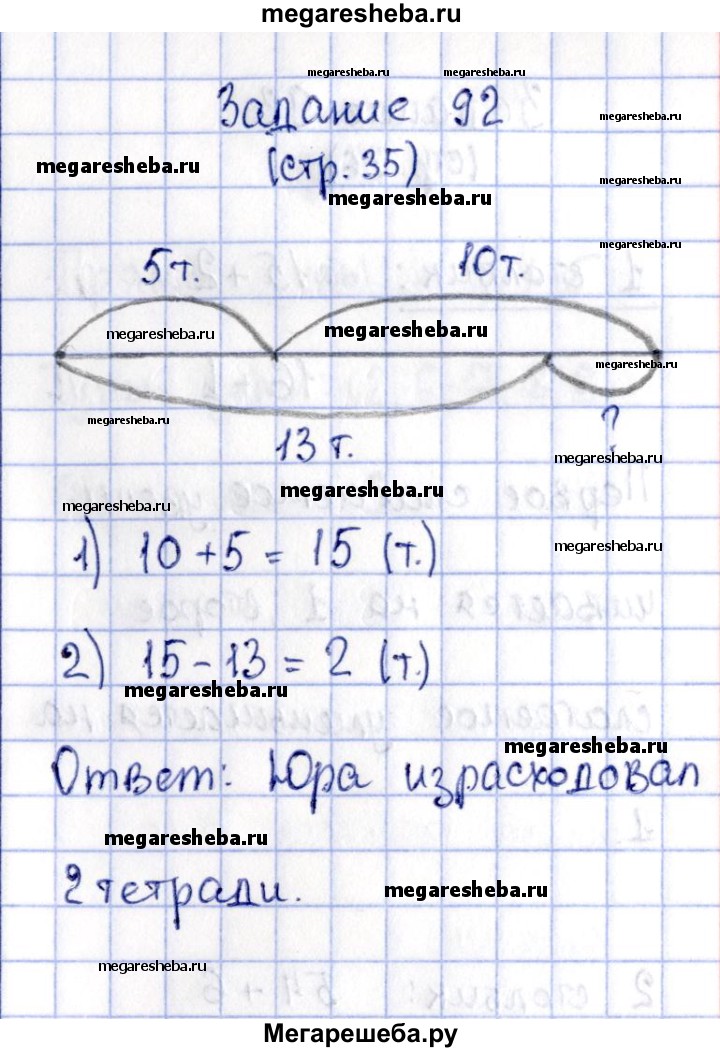 megaresheba.ru
megaresheba.ru megaresheba.ru
Задание 92
megaresheba.ru
megaresheba.ru
(стр. 35)
megaresheba.ru
megaresheba.ru
megaresheba.ru
5т. 10т.
megaresheba.ru megaresheba.ru
megaresheba.ru
megaresheba.ru
?
13 т.
megaresheba.ru
megaresheba.ru
megaresheba.ru
1) 10 + 5 = 15 (т.)
megaresheba.ru
2) 15 - 13 = 2 (т.)
megaresheba.ru
megaresheba.ru
Ответ: Юра израсходовал
megaresheba.ru
2 тетради.
megaresheba.ru
megaresheba.ru
Мегарешеба.ру